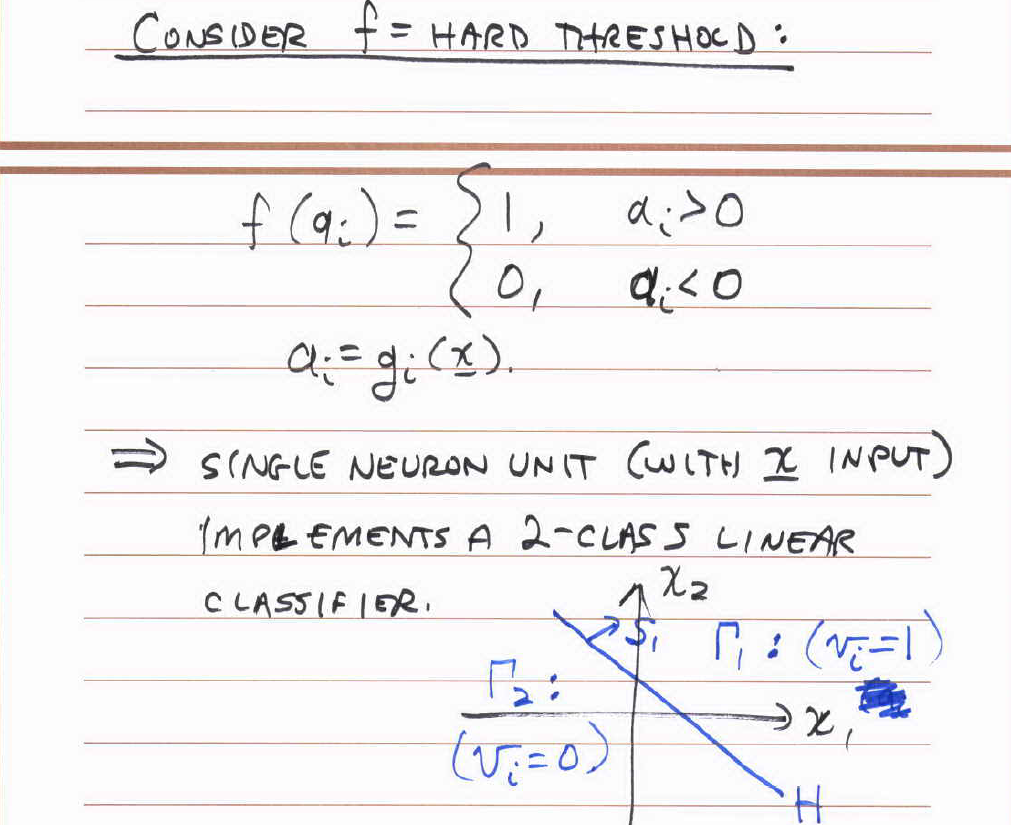 CONSIDER f = HARD THRESHOLD:
f(a_i) = { 1, a_i > 0
0, a_i < 0
a_i = g_i(x).
⇒ SINGLE NEURON UNIT (WITH x INPUT)
IMPLEMENTS A 2-CLASS LINEAR
CLASSIFIER.
x₂
S₁
Γ₁: (v_i=1)
Γ₂:
x₁
(v_i=0)
H